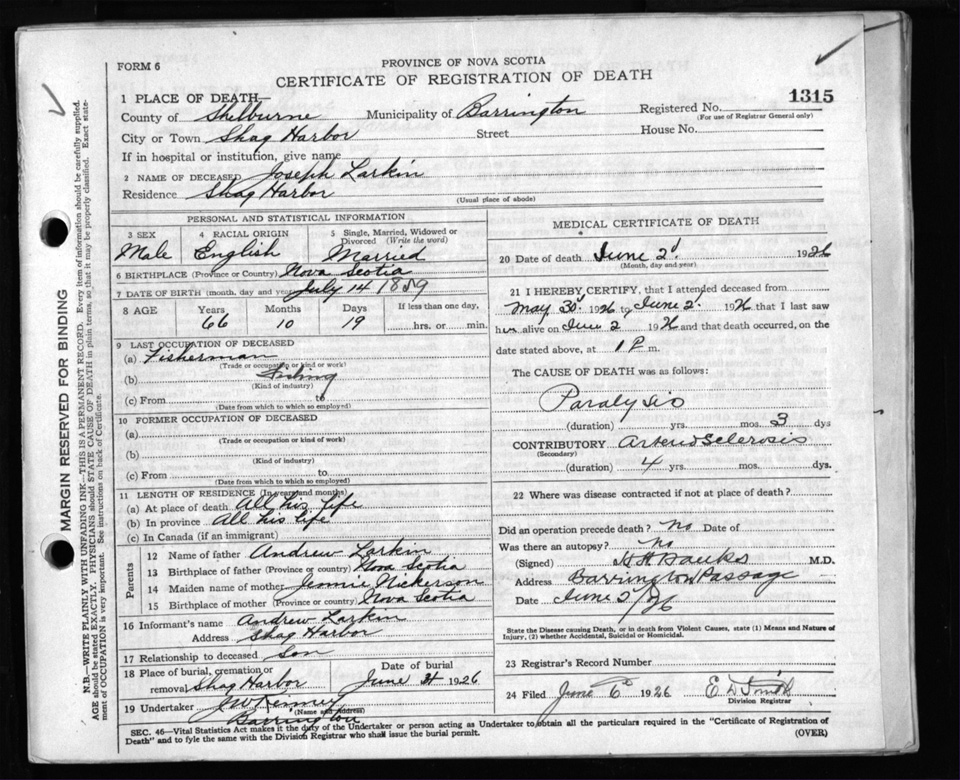 FORM 6
PROVINCE OF NOVA SCOTIA
CERTIFICATE OF REGISTRATION OF DEATH
1315
1 PLACE OF DEATH—
County of Shelburne Municipality of Barrington Registered No.
(For use of Registrar General only)
City or Town Shag Harbor Street House No.
If in hospital or institution, give name
2 NAME OF DECEASED Joseph Larkin
Residence Shag Harbor
(Usual place of abode)
PERSONAL AND STATISTICAL INFORMATION
3 SEX 4 RACIAL ORIGIN 5 Single, Married, Widowed or Divorced (Write the word)
Male English Married
6 BIRTHPLACE (Province or Country) Nova Scotia
7 DATE OF BIRTH (month, day and year) July 14 1859
8 AGE Years Months Days If less than one day,
66 10 19 hrs. or min.
9 LAST OCCUPATION OF DECEASED
(a) Fisherman
(Trade or occupation or kind of work)
(b) Fishing
(Kind of industry)
(c) From to
(Date from which to which so employed)
10 FORMER OCCUPATION OF DECEASED
(a)
(Trade or occupation or kind of work)
(b)
(Kind of industry)
(c) From to
(Date from which to which so employed)
11 LENGTH OF RESIDENCE (In years and months)
(a) At place of death All his life
(b) In province All his life
(c) In Canada (if an immigrant)
Parents
12 Name of father Andrew Larkin
13 Birthplace of father (Province or country) Nova Scotia
14 Maiden name of mother Jennie Nickerson
15 Birthplace of mother (Province or country) Nova Scotia
16 Informant's name Andrew Larkin
Address Shag Harbor
17 Relationship to deceased Son
18 Place of burial, cremation or removal Shag Harbor Date of burial June 1926
19 Undertaker J W Kenney
(Name and Address)
Barrington
MEDICAL CERTIFICATE OF DEATH
20 Date of death June 2d 1926
(Month, day and year)
21 I HEREBY CERTIFY, that I attended deceased from
May 30d 1926 to June 2d 1926 that I last saw
him alive on June 2 1926 and that death occurred, on the
date stated above, at 1 P m.
The CAUSE OF DEATH was as follows:
Paralysis
(duration) yrs. mos. 3 dys
CONTRIBUTORY Arteriosclerosis
(Secondary)
(duration) 4 yrs. mos. dys.
22 Where was disease contracted if not at place of death?
Did an operation precede death? no Date of
Was there an autopsy? no
(Signed) H H Banks M.D.
Address Barrington Passage
Date June 2/26
State the Disease causing Death, or in death from Violent Causes, state (1) Means and Nature of
Injury, (2) whether Accidental, Suicidal or Homicidal.
23 Registrar's Record Number
24 Filed June 6 1926 E D Smith
Division Registrar
SEC. 46—Vital Statistics Act makes it the duty of the Undertaker or person acting as Undertaker to obtain all the particulars required in the "Certificate of Registration of
Death" and to fyle the same with the Division Registrar who shall issue the burial permit.
(OVER)
MARGIN RESERVED FOR BINDING
N.B.—WRITE PLAINLY WITH UNFADING INK—THIS IS A PERMANENT RECORD. Every item of information should be carefully supplied.
AGE should be stated EXACTLY. PHYSICIANS should STATE CAUSE OF DEATH in plain terms, so that it may be properly classified. Exact state-
ment of OCCUPATION is very important. See instructions on back of Certificate.